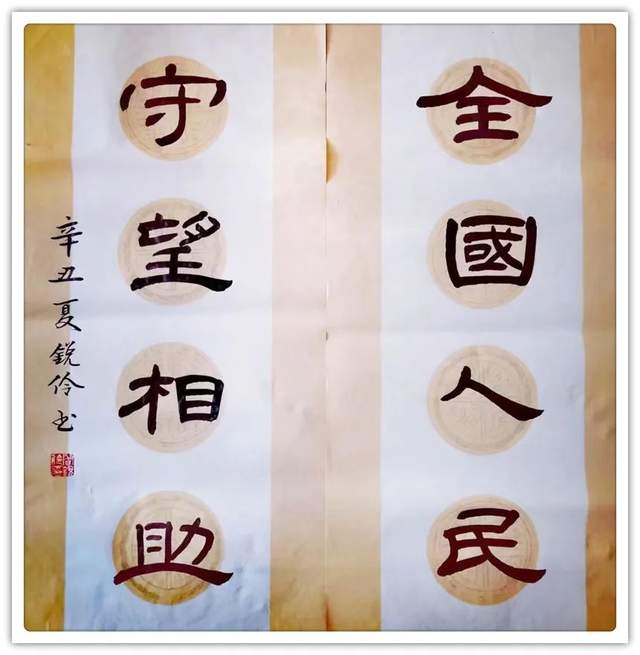 全國人民
守望相助
辛丑夏銳伶书